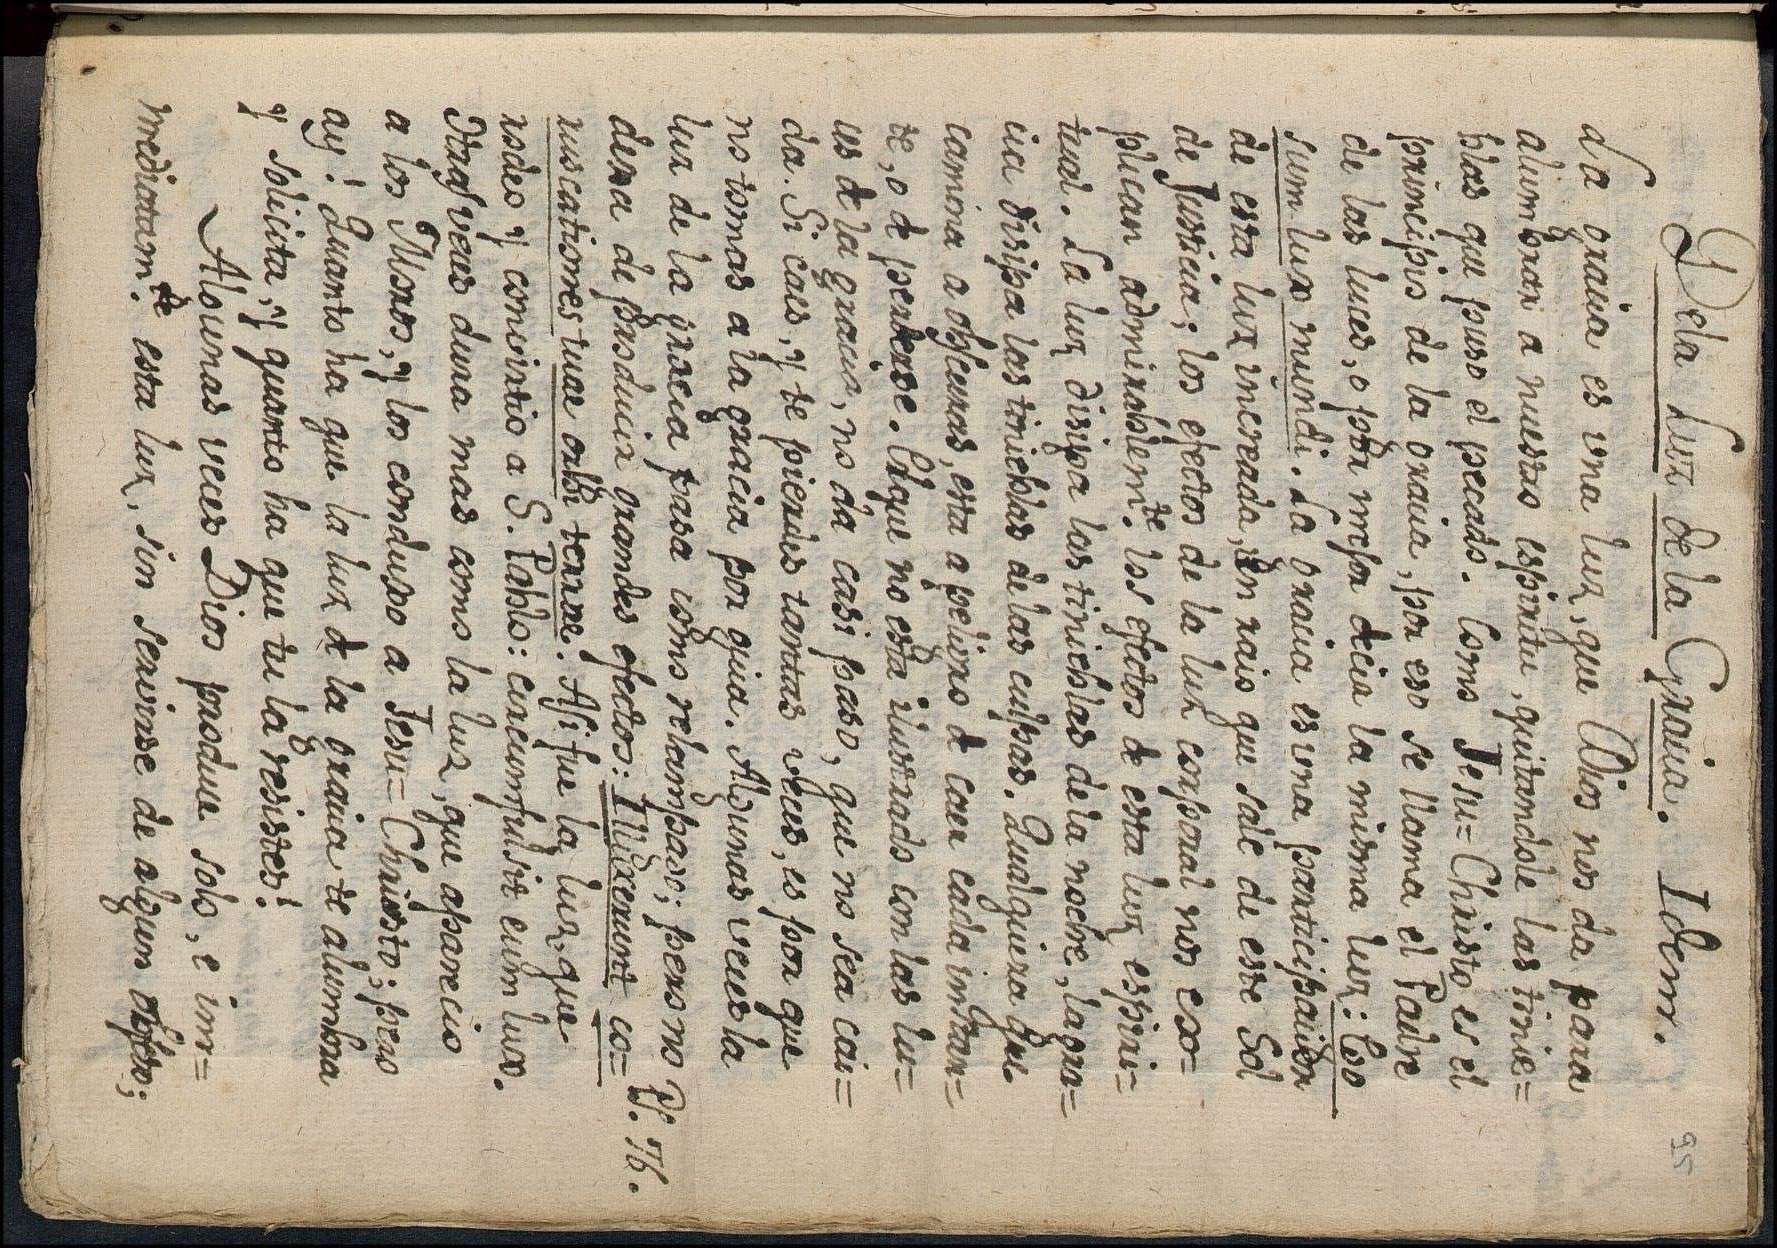 De la Luz de la Graçia. Idem.
95
La graçia es vna luz, que Dios nos da para
alumbrar a nuestro espiritu, quitandole las tinie=
blas que puso el pecado. Como Jesu=Christo es el
principio de la graçia, por eso se llama el Padre
de las luces, o por mejor decir la misma luz: Ego
sum lux mundi. La graçia es vna participaçion
de esta luz increada, un raio que sale de este Sol
de Justicia; los efectos de la luz corporal nos ex=
plican admirablem.te los efectos de esta luz espiri=
tual. La luz disipa las tinieblas de la noche, la gra=
cia disipa las tinieblas de las culpas. Qualquiera que
camina a obscuras, esta a peligro de caer cada instan=
te, o de perderse. El que no esta ilustrado con las lu=
ces de la gracia, no da casi paso, que no sea cai=
da. Si caes, y te pierdes tantas veces, es por que
no tomas a la gracia por guia. Algunas veces la
luz de la gracia pasa como relampago; pero no
dexa de producir grandes efectos: Illuxerunt co= Ps. 76.
ruscationes tuae orbi terrae. Asi fue la luz, que
rodeo y convirtio a S. Pablo: circumfulsit eum lux.
Otras veces dura mas como la luz, que aparecio
a los Magos, y los conduxo a Jesu=Christo; pero
ay! Quanto ha que la luz de la graçia te alumbra
y solicita, y quanto ha que tu la resistes!
Algunas veces Dios produce solo, e im=
mediatam.te esta luz, sin servirse de algun objeto;